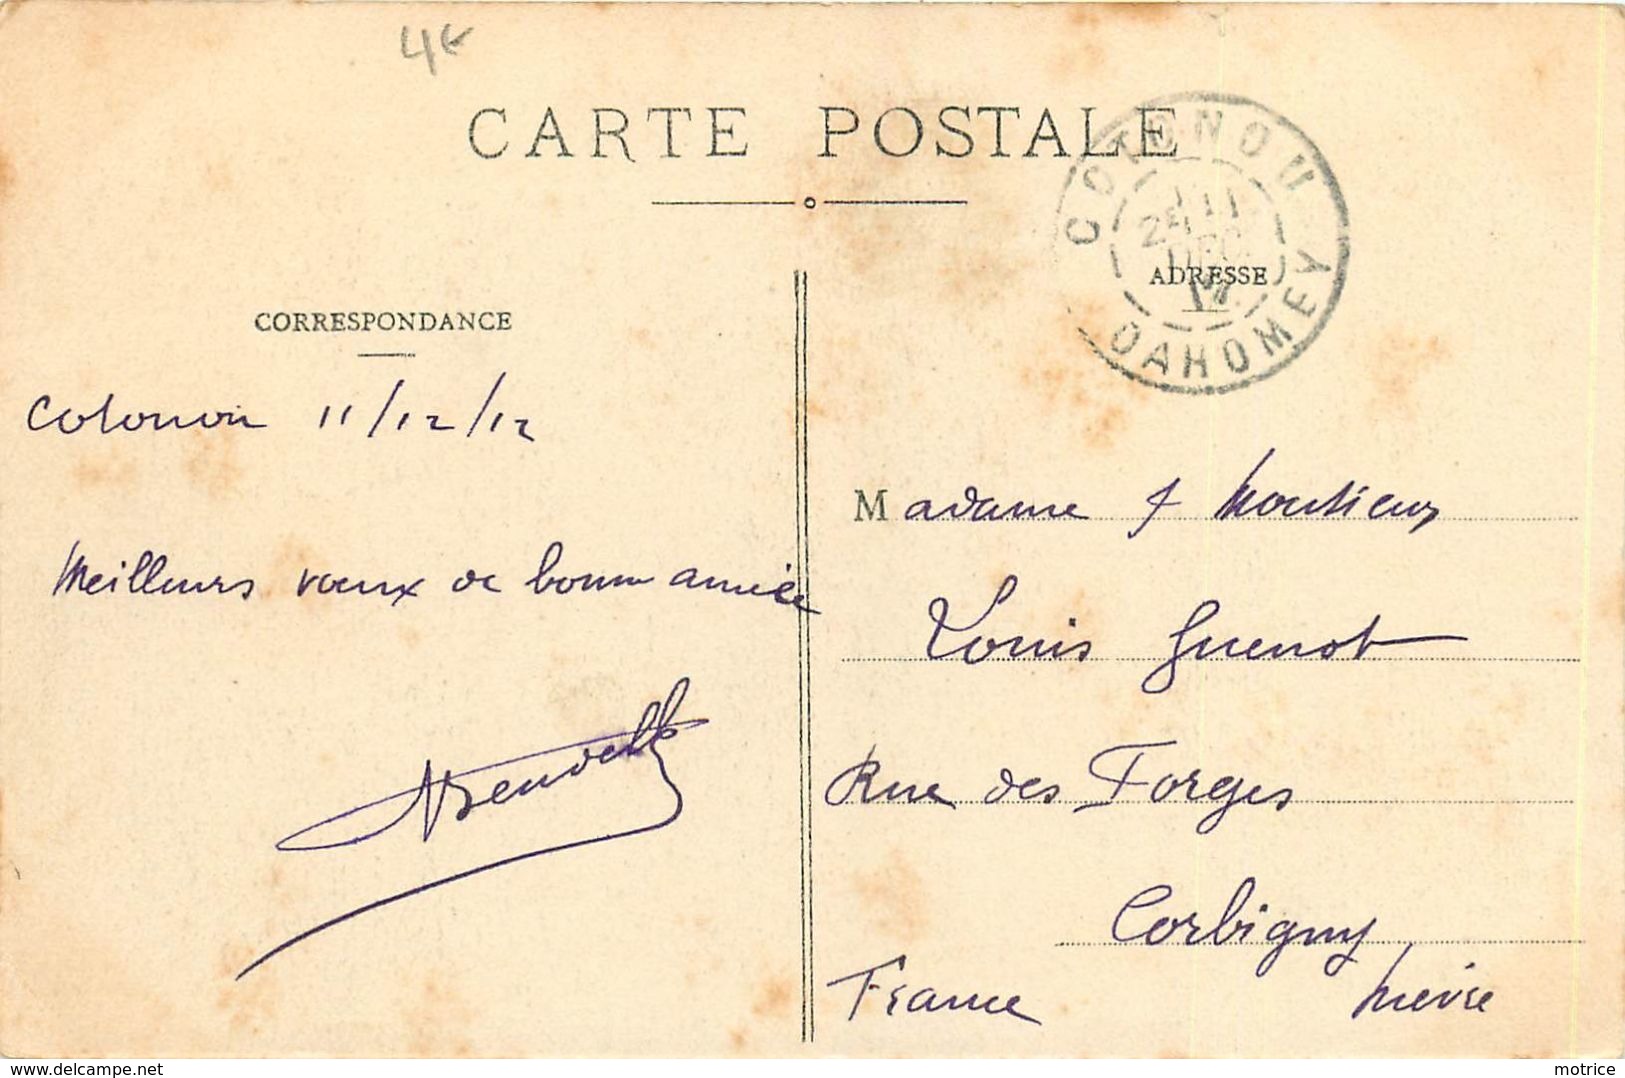 4€
CARTE POSTALE
COTONOU
DAHOMEY
CORRESPONDANCE
ADRESSE
Cotonou 11/12/12
Madame & Monsieur
Meilleurs vœux de bonne année
Louis Guenot
Rue des Forges
Corbigny
France Nièvre
https://www.delcampe.net
motrice